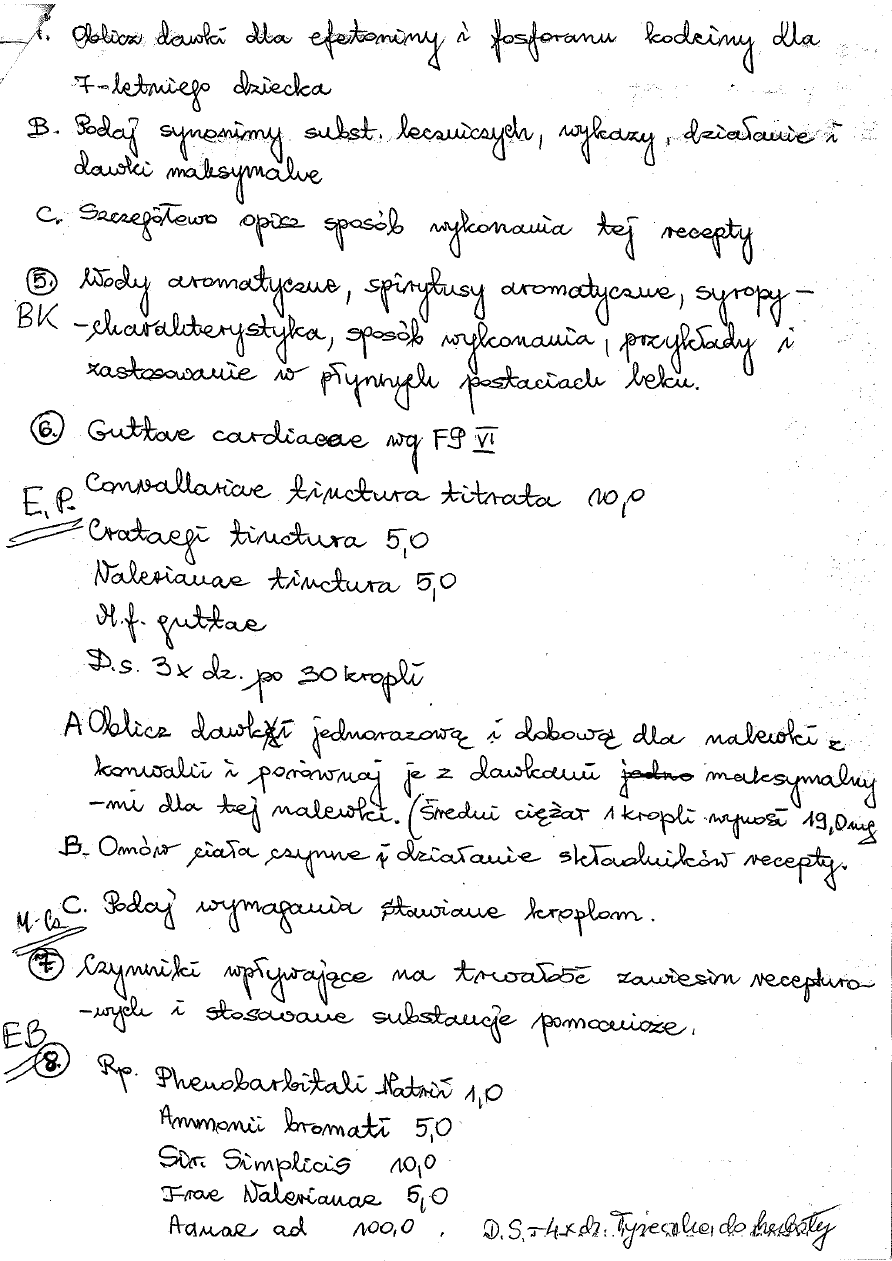 1. Oblicz dawki dla efetoniny i fosforanu kodeiny dla
7-letniego dziecka
B. Podaj synonimy subst. leczniczych, wykazy, działanie i
dawki maksymalne
C. Szczegółowo opisz sposób wykonania tej recepty
5. Wody aromatyczne, spirytusy aromatyczne, syropy -
BK -charakterystyka, sposób wykonania, przykłady i
zastosowanie w płynnych postaciach leku.
6. Guttae cardiacae wg FP VI
E.P. Convallariae tinctura titrata 10,0
Crataegi tinctura 5,0
Valerianae tinctura 5,0
M.f. guttae
D.s. 3x dz. po 30 kropli
A Oblicz dawki jednorazową i dobową dla nalewki z
konwalii i porównaj je z dawkami jedno maksymalny
-mi dla tej nalewki. (Średni ciężar 1 kropli wynosi 19,0 mg
B. Omów ciała czynne i działanie składników recepty.
C. Podaj wymagania stawiane kroplom.
7. Czynniki wpływające na trwałość zawiesin recepturo-
-wych i stosowane substancje pomocnicze.
EB
8. Rp. Phenobarbitali Natrii 1,0
Ammonii bromati 5,0
Sir. Simplicis 10,0
Trae Valerianae 5,0
Aquae ad 100,0 . D.S. - 4x dz. łyżeczkę do herbaty